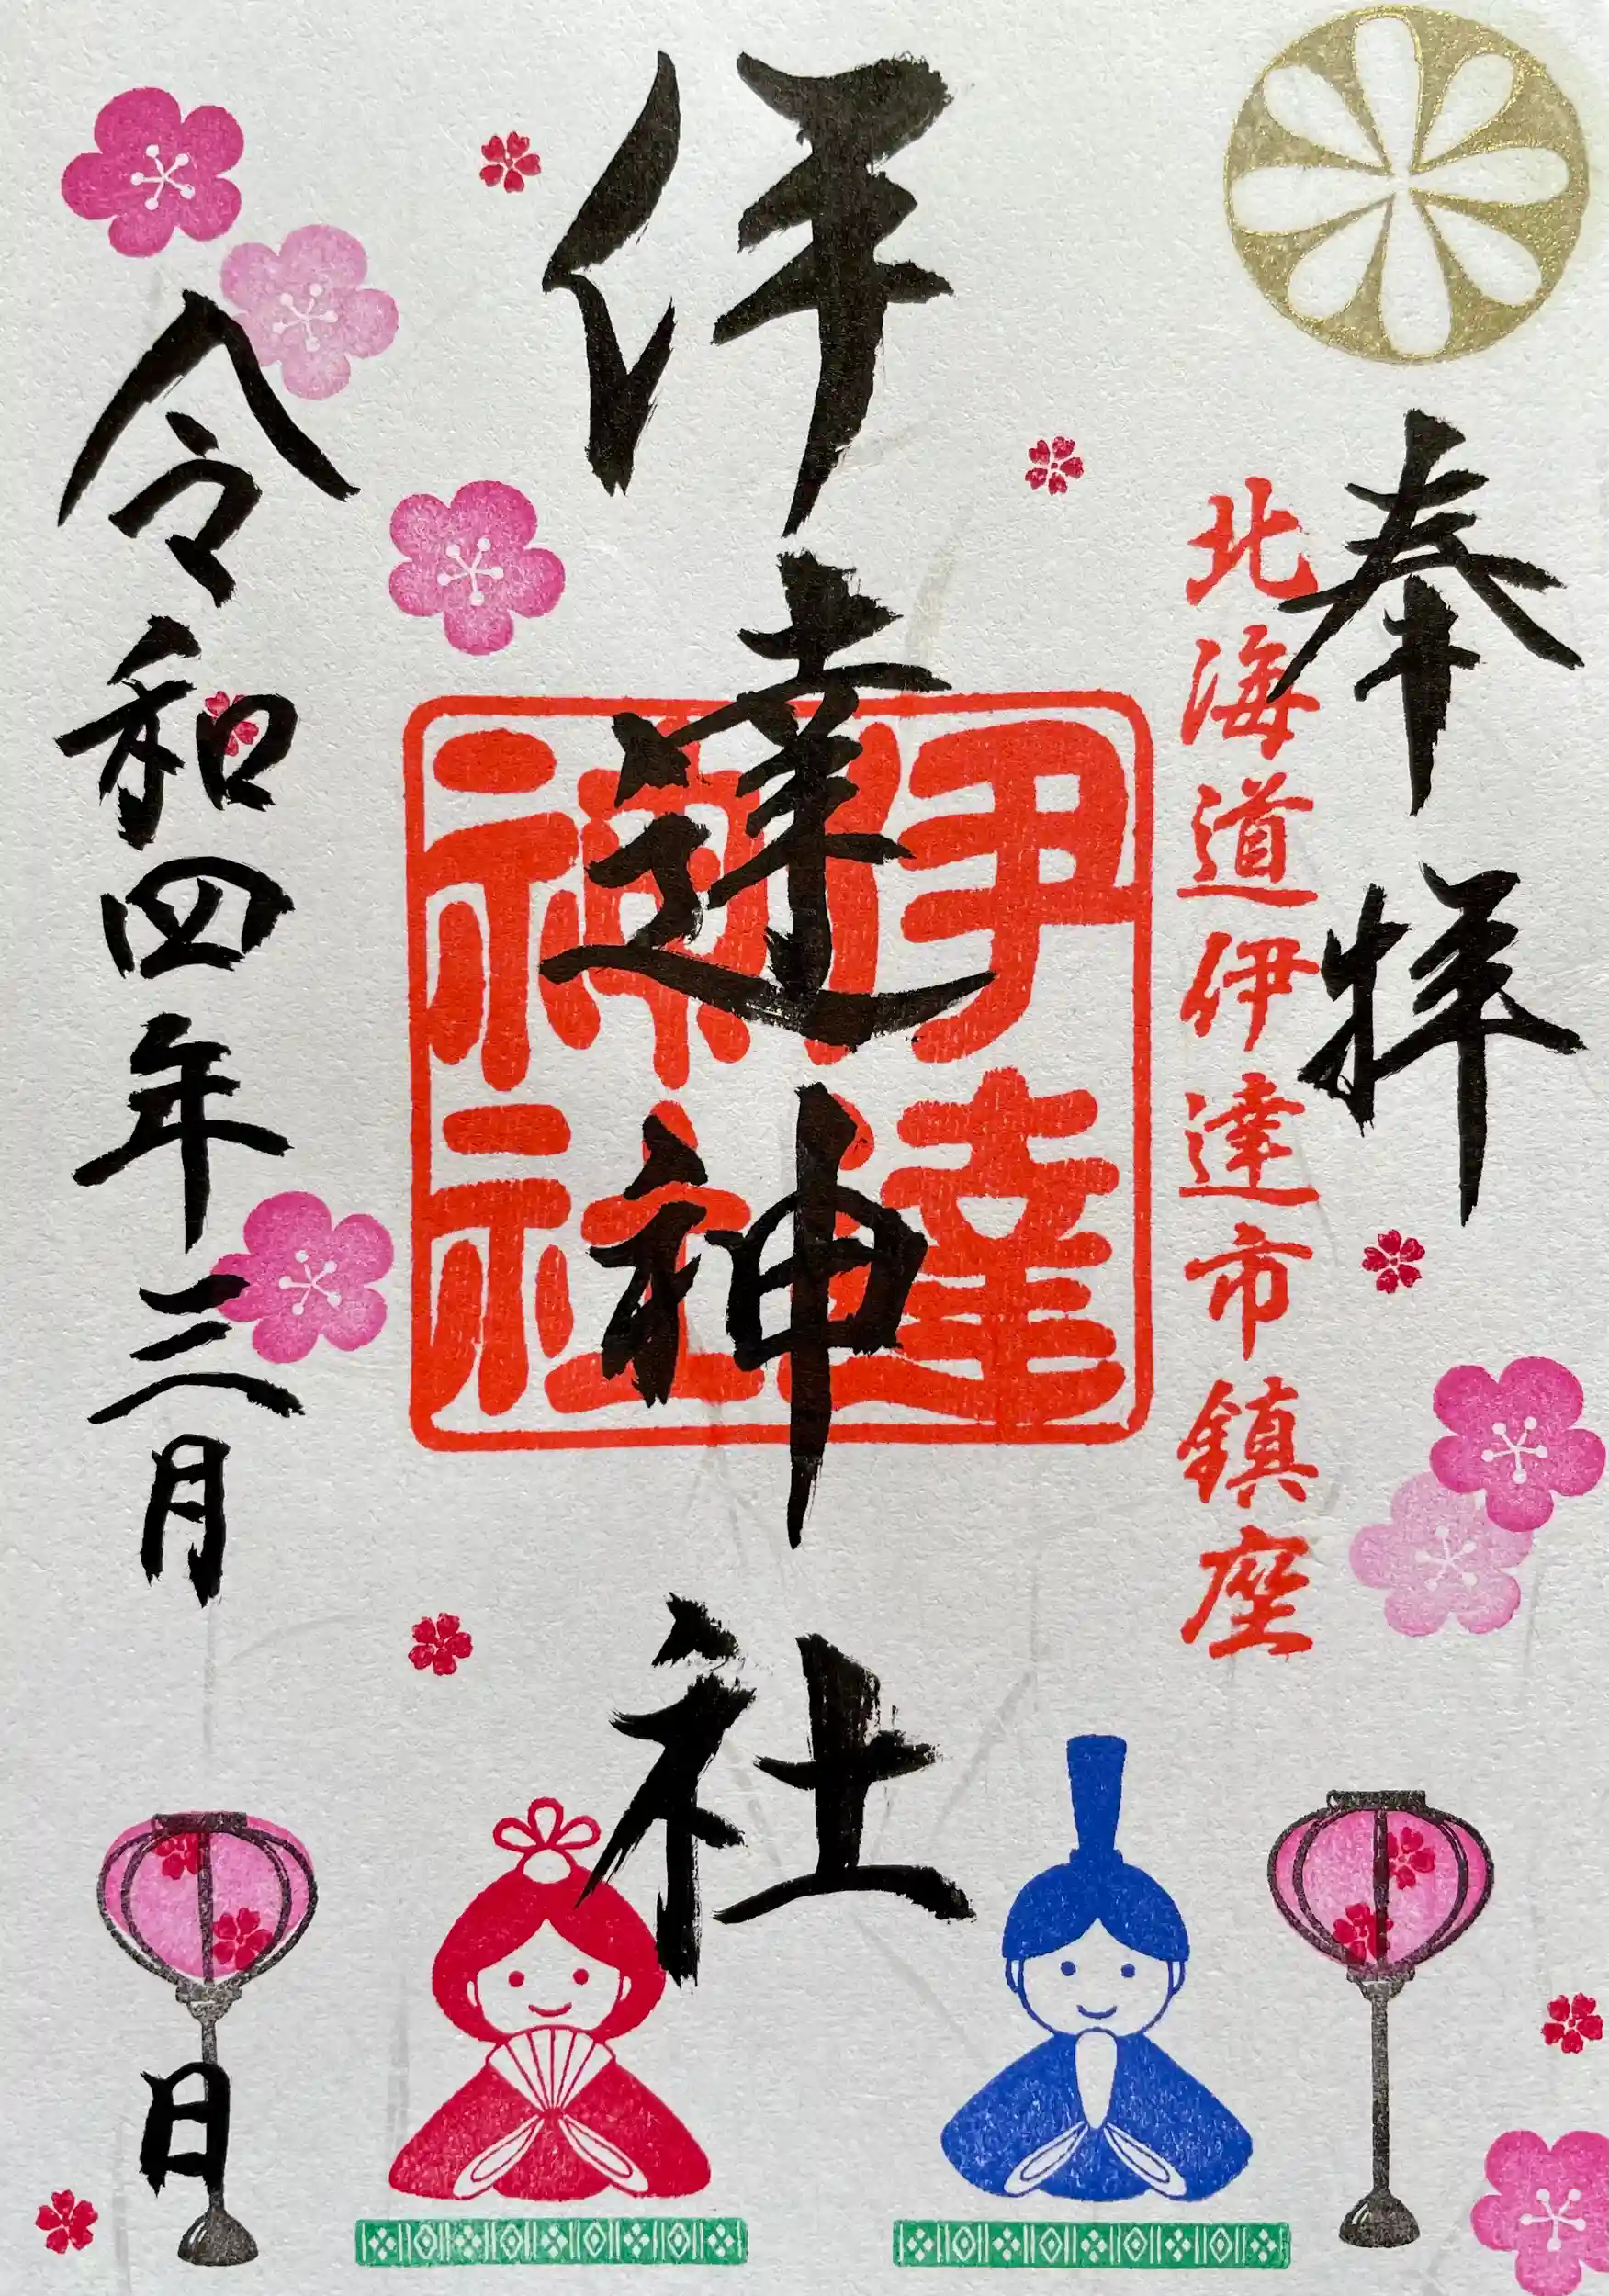 奉拝
北海道伊達市鎮座
伊達神社
伊達神社
令和四年三月 日